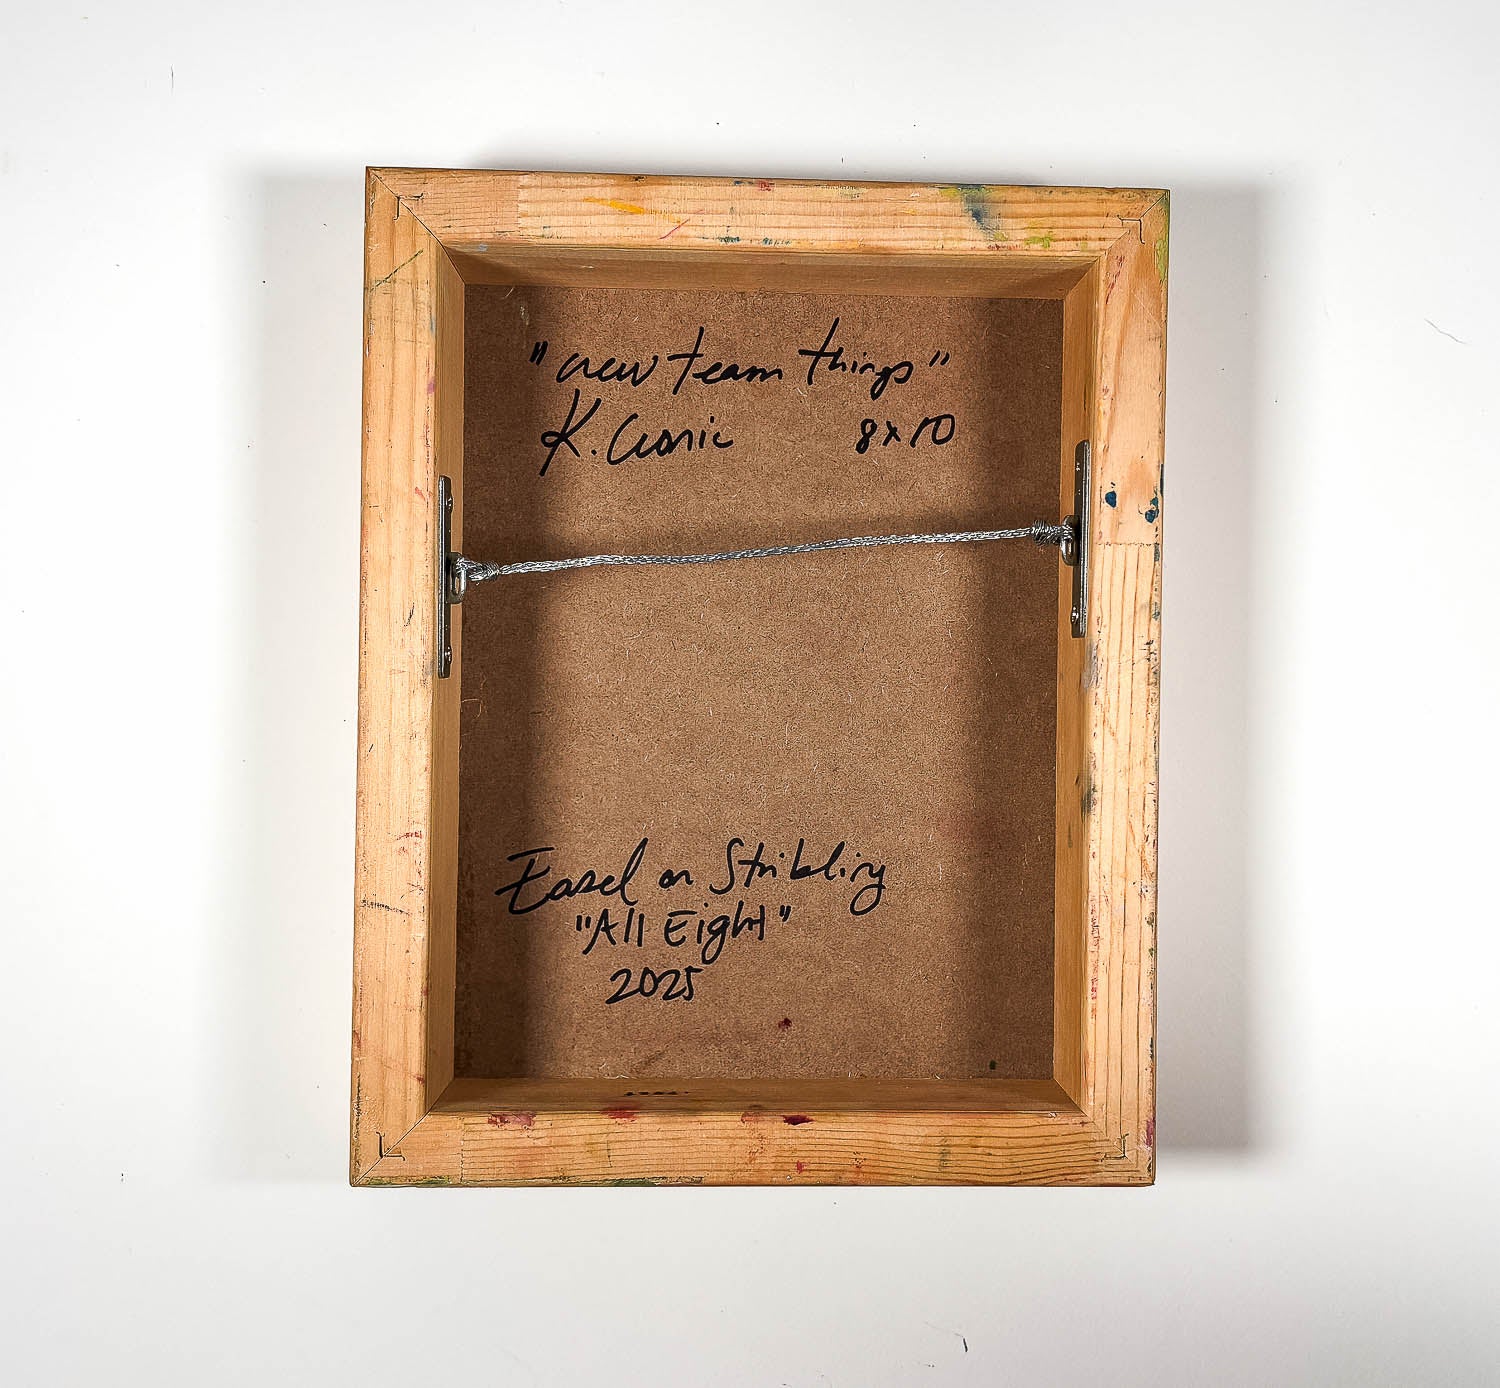 "crew team things"
K. Cronic 8x10
Easel on Stribling
"All Eight"
2025